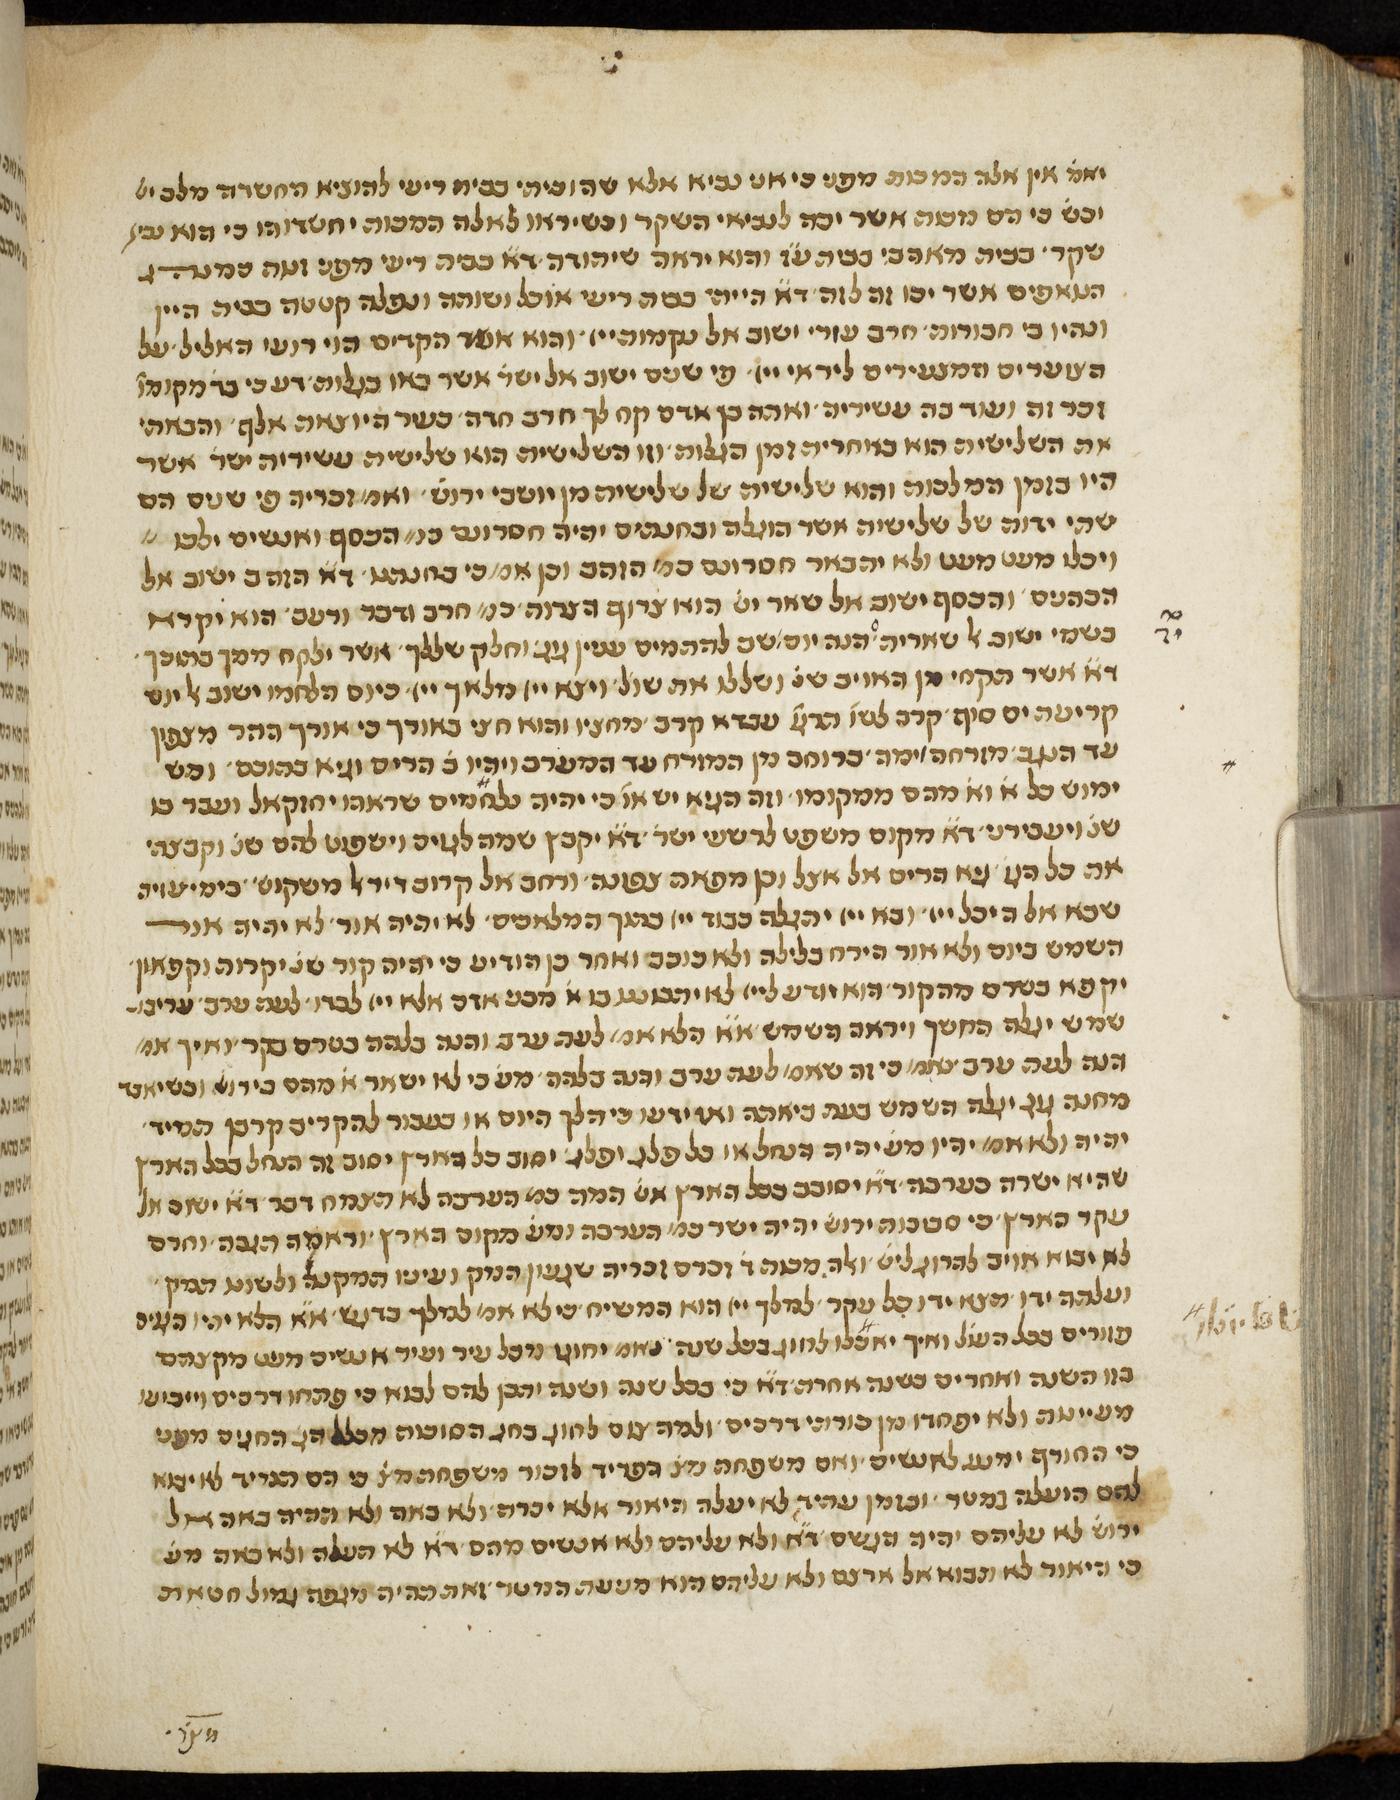 יאמ̇ אין אלה המכות מפני כי אני נביא אלא שהוכיתי בבית ריעי להוציא החשרה מלב יש̇
וכש̇ כי הם מכות אשר יכה לנביאי השקר וכשיראו לאלה המכות יחשדוהו כי הוא נביא
שקר בבית מאהבי בבית ע̈ז והוא יראה שיהודה ד̈א בבית ריעי מפני
אשר יכו זה לזה ד̈א הייתי בבית ריעי אוכל ושותה ונפלה קטטה בבית היין
ונהיו בי חבורות חרב עורי ישוב אל נקמות ייי והוא אשר הקדים הוי רועי האליל על
הצוערים המצעירים ליראי ייי פי שנים ישוב אל ישר̇ אשר באו בגלות דע כי בד̇ מקומו̇
זכר זה ועוד בה עשיריה ואתה בן אדם קח לך חרב חדה כעיר היוצאת אלף והבאתי
את השלישית הוא באחרית זמן הגלות וזו השלישית הוא שלישית עשירית ישר̇ אשר
היו בזמן המלכות והוא שלישית של שלישית מן יושבי ירוש̇ ואמ׳ זכריה פי שנים הם
שתי ידות של שלישית אשר הוגלה ובחנתים יהיה חסרונם כמ׳ הכסף ואנשים ילכו
ויכלו מעט מעט ולא יתבאר חסרונם כמ׳ הזהב וכן אמ׳ כי בחנתני ד̈א הזהב ישוב אל
הכהנים והכסף ישוב אל שאר יש̇ הוא צרוף הצרות כמ׳ חרב ודבר ורעב הוא יקרא
בשמי ישוב ל שארית הנה יום שב להתמים ענין גוג וחלק שללך אשר ילקח ממך בתוכך
ד̈א אשר תקחי מן האויב שנ̇ ושללו את שול̇ ויצא ייי מלאך ייי כיום הלחמו ישוב ל יום
קריעת ים סוף קרב לשו̇ תרג̇ עבדא קרב מחציו והוא חצי באורך כי אורך ההר מצפון
עד הנגב מזרחה וימה ברוחב מן המזרח עד המערב ויהיו ב̇ הרים וגיא בתוכם ומש
ימוש כל א̇ וא̇ מהם ממקומו וזה הגיא יש או̇ כי יהיה שראהו יחזקאל ועבר בו
שנ̇ ויעבירני ד̈א מקום משפט לרשעי ישר̇ ד̈א יקבץ שמה לגוים וישפט להם שנ̇ וקבצתי
את כל הגוי̇ גיא הרים אל אצל וכן מפאת צפונה ורחב אל קרוב ל משקוש̇ כימי עויה
שבא אל היכל ייי ובא ייי יהגלה כבוד ייי בתוך המלאכים לא יהיה אור לא יהיה אור
השמש ביום ולא אור הירח בלילה ולא כוכב ואחר כן הודיע כי יהיה קור שנ̇ יקרות וקפאון
יקפא בשדם מהקור הוא יודע לייי לא יתבונן בו א̇ מבני אדם אלא ייי לבדו לעת ערב עריבו
שמש יגלה החשך ויראה השמש א̈א הלא אמ׳ לעת ערב והנה בלהה בטרם בקר ואיך אמ׳
הנה לעת ערב שאמ׳ כי זה שאמ׳ לעת ערב והנה בלהה מש̇ כי לא ישאר א̇ מהם בירוש̇ וכשיאמ̇
מחנה גוג יגלה השמש בעת ביאתה ואז ידעו כי הלך היום או בעבור להקריב קרבן תמיד
יהיה ולא אמ׳ יהיו מש̇ יהיה הנחל או כל פלג יפלג יסוב כל הארץ יסוב זה הנחל בכל הארץ
שהיא ישרה כערבה ד̈א יסובב בכל הארץ אש̇ המה כמ׳ הערבה לא תצמח דבר ד̈א ישוב אל
עקר הארץ כי סביבות ירוש̇ יהיה ישר כמ׳ הערבה ומש̇ מקום הארץ וראמה הגבה וחרם
לא יבוא אויב להרוג ליש̇ ולה מכות ד̇ זכרם זכריה שגעון המק ועיניו תמקנה ולשונו תמק
ועלתה ידו תצא ידו כל עקר למלך ייי הוא המשיח כי לא אמ׳ למלך בדגש א̈א הלא יהיו הגוים
פזורים בכל העול̇ ואיך יאכלו לחוג בכל שנה נאמ׳ יחוגו מכל עיר ועיר אנשים מעט מקצתם
בזו השנה ואחרים בשנה אחרת ד̈א כי בכל שנה ושנה יתכן להם לבוא כי פתחו דרכים וייבישו
מעיינות ולא יפחדו מן כורתי דרכים ולמה צום לחוג בחג הסוכות מכלל הג החגים מפני
כי החורף ימנע לאנשים ואם משפחת מצ̇ הפריד לזכור משפחת מצ̇ כי הם תמיד לא יבוא
להם הועלה במטר ובזמן עתיד לא יעלה היאור אלא יכרה ולא באה ולא תהיה באה אל
ירוש̇ לא עליהם יהיה הגשם ד̈א ולא עליהם ולא אנשים מהם ד̈א לא תעלה ולא באה מש̇
כי היאור לא תבוא אל ארצם ולא עליהם הוא מניעת המטר זאת תהיה מגפה גמול חטאת